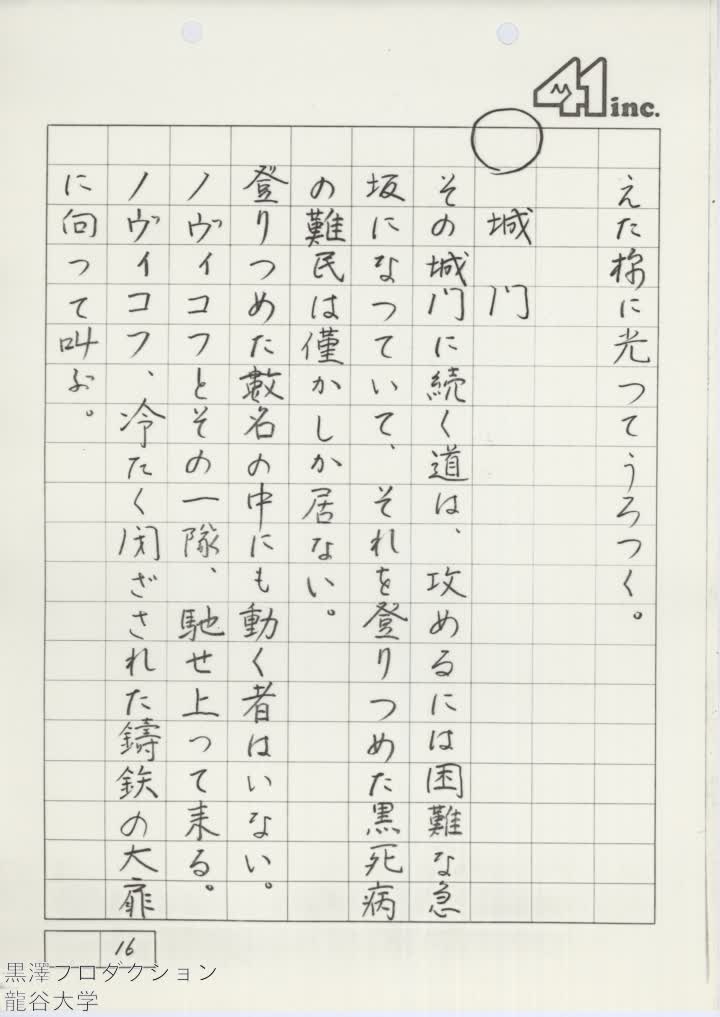 41 inc.
えた様に光ってうろつく。
○城門
その城門に続く道は、攻めるには困難な急
坂になっていて、それを登りつめた黒死病
の難民は僅かしか居ない。
登りつめた數名の中にも動く者はいない。
ノヴィコフとその一隊、馳せ上って来る。
ノヴィコフ、冷たく閉ざされた鋳鉄の大扉
に向って叫ぶ。
16
黒澤プロダクション
龍谷大学